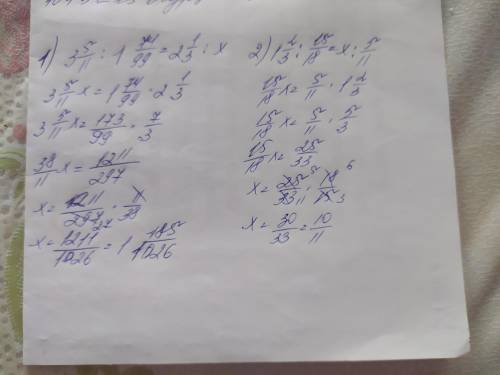 1) 3 5/11 : 1 74/99 = 2 1/3 : x
3 5/11 x = 1 74/99 · 2 1/3
3 5/11 x = 173/99 · 7/3
38/11 x = 1211/297
x = 1211/297 27 · 11/38
x = 1211/1026 = 1 185/1026
2) 1 2/3 : 15/18 = x : 5/11
15/18 x = 5/11 · 1 2/3
15/18 x = 5/11 · 5/3
15/18 x = 25/33
x = 25 5/33 11 · 18 6/15 3
x = 30/33 = 10/11